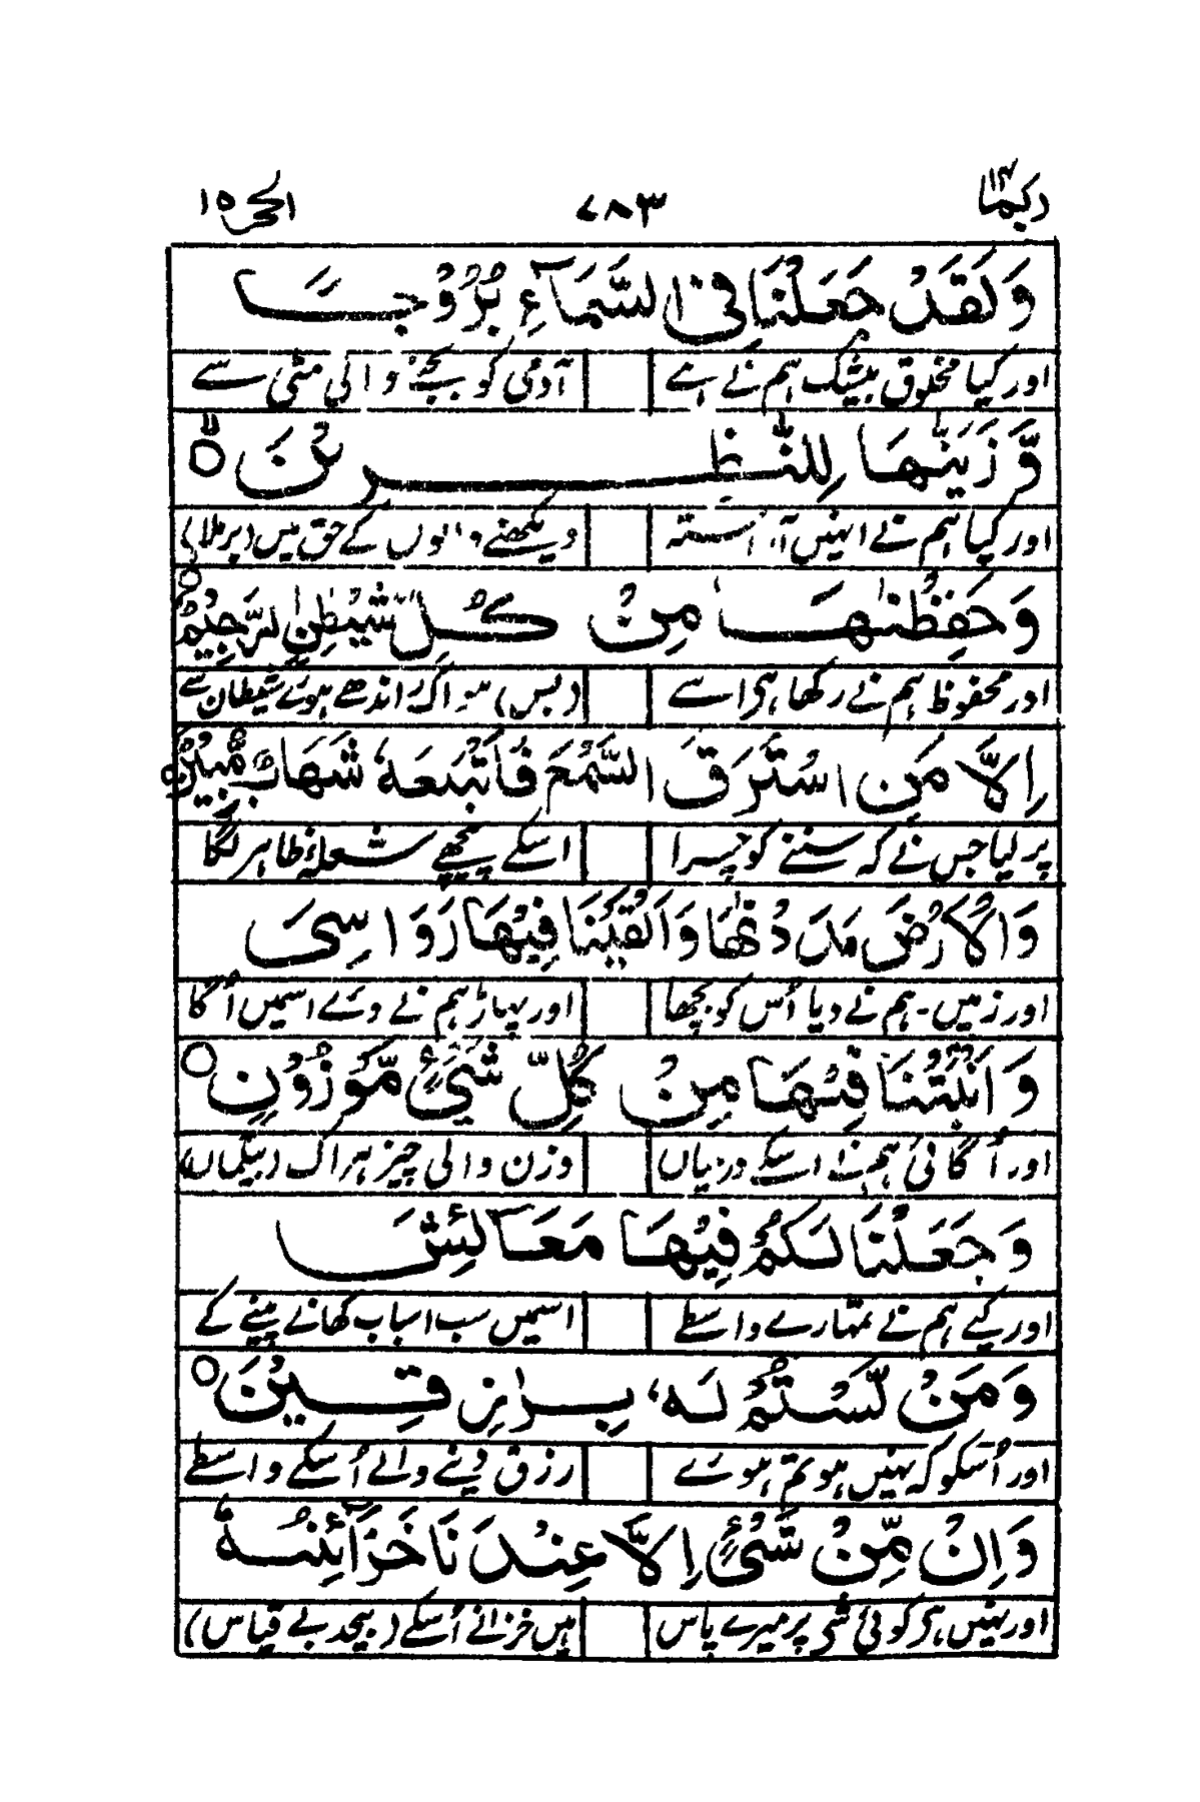 ربما ۱۴ ۷۸۳ الحجر ۱۵
وَلَقَدْ جَعَلْنَا فِی السَّمَآءِ بُرُوْجًا
اور کیا مخلوق بیشک ہم نے اے آدمی کو بجنے والی مٹی سے
وَّ زَیَّنّٰهَا لِلنّٰظِرِیْنَ ۙ○
اور کیا ہم نے انہیں آراستہ دیکھنے والوں کے حق میں (برملا)
وَحَفِظْنٰهَا مِنْ كُلِّ شَیْطٰنٍ رَّجِیْمٍ ○
اور محفوظ ہم نے رکھا ہی اسے (بس) ہر اک راندھے ہوئے شیطان سے
اِلَّا مَنِ اسْتَرَقَ السَّمْعَ فَاَتْبَعَهٗ شِهَابٌ مُّبِیْنٌ ○
پر لیا جس نے کہ سننے کو چرا اسکے پیچھے شعلۂ ظاہر لگا
وَالْاَرْضَ مَدَدْنٰهَا وَاَلْقَیْنَا فِیْهَا رَوَاسِیَ
اور زمیں۔ ہم نے دیا اُس کو بچھا اور پہاڑ ہم نے دئے اسمیں اُگا
وَاَنْۢبَتْنَا فِیْهَا مِنْ كُلِّ شَیْءٍ مَّوْزُوْنٍ ○
اور اُگائی ہم نے اسکے درمیاں وزن والی چیز ہر اک (بیگماں)
وَجَعَلْنَا لَكُمْ فِیْهَا مَعَایِشَ
اور کیے ہم نے تمہارے واسطے اسمیں سب اسباب کھانے پینے کے
وَمَنْ لَّسْتُمْ لَهٗ بِرٰزِقِیْنَ ○
اور اُسکو کہ نہیں ہو تم ہوئے رزق دینے والے اُسکے واسطے
وَاِنْ مِّنْ شَیْءٍ اِلَّا عِنْدَنَا خَزَآئِنُهٗ
اور نہیں ہی کوئی شی پر میرے پاس ہیں خزانے اُسکے (بیحد بے قیاس)